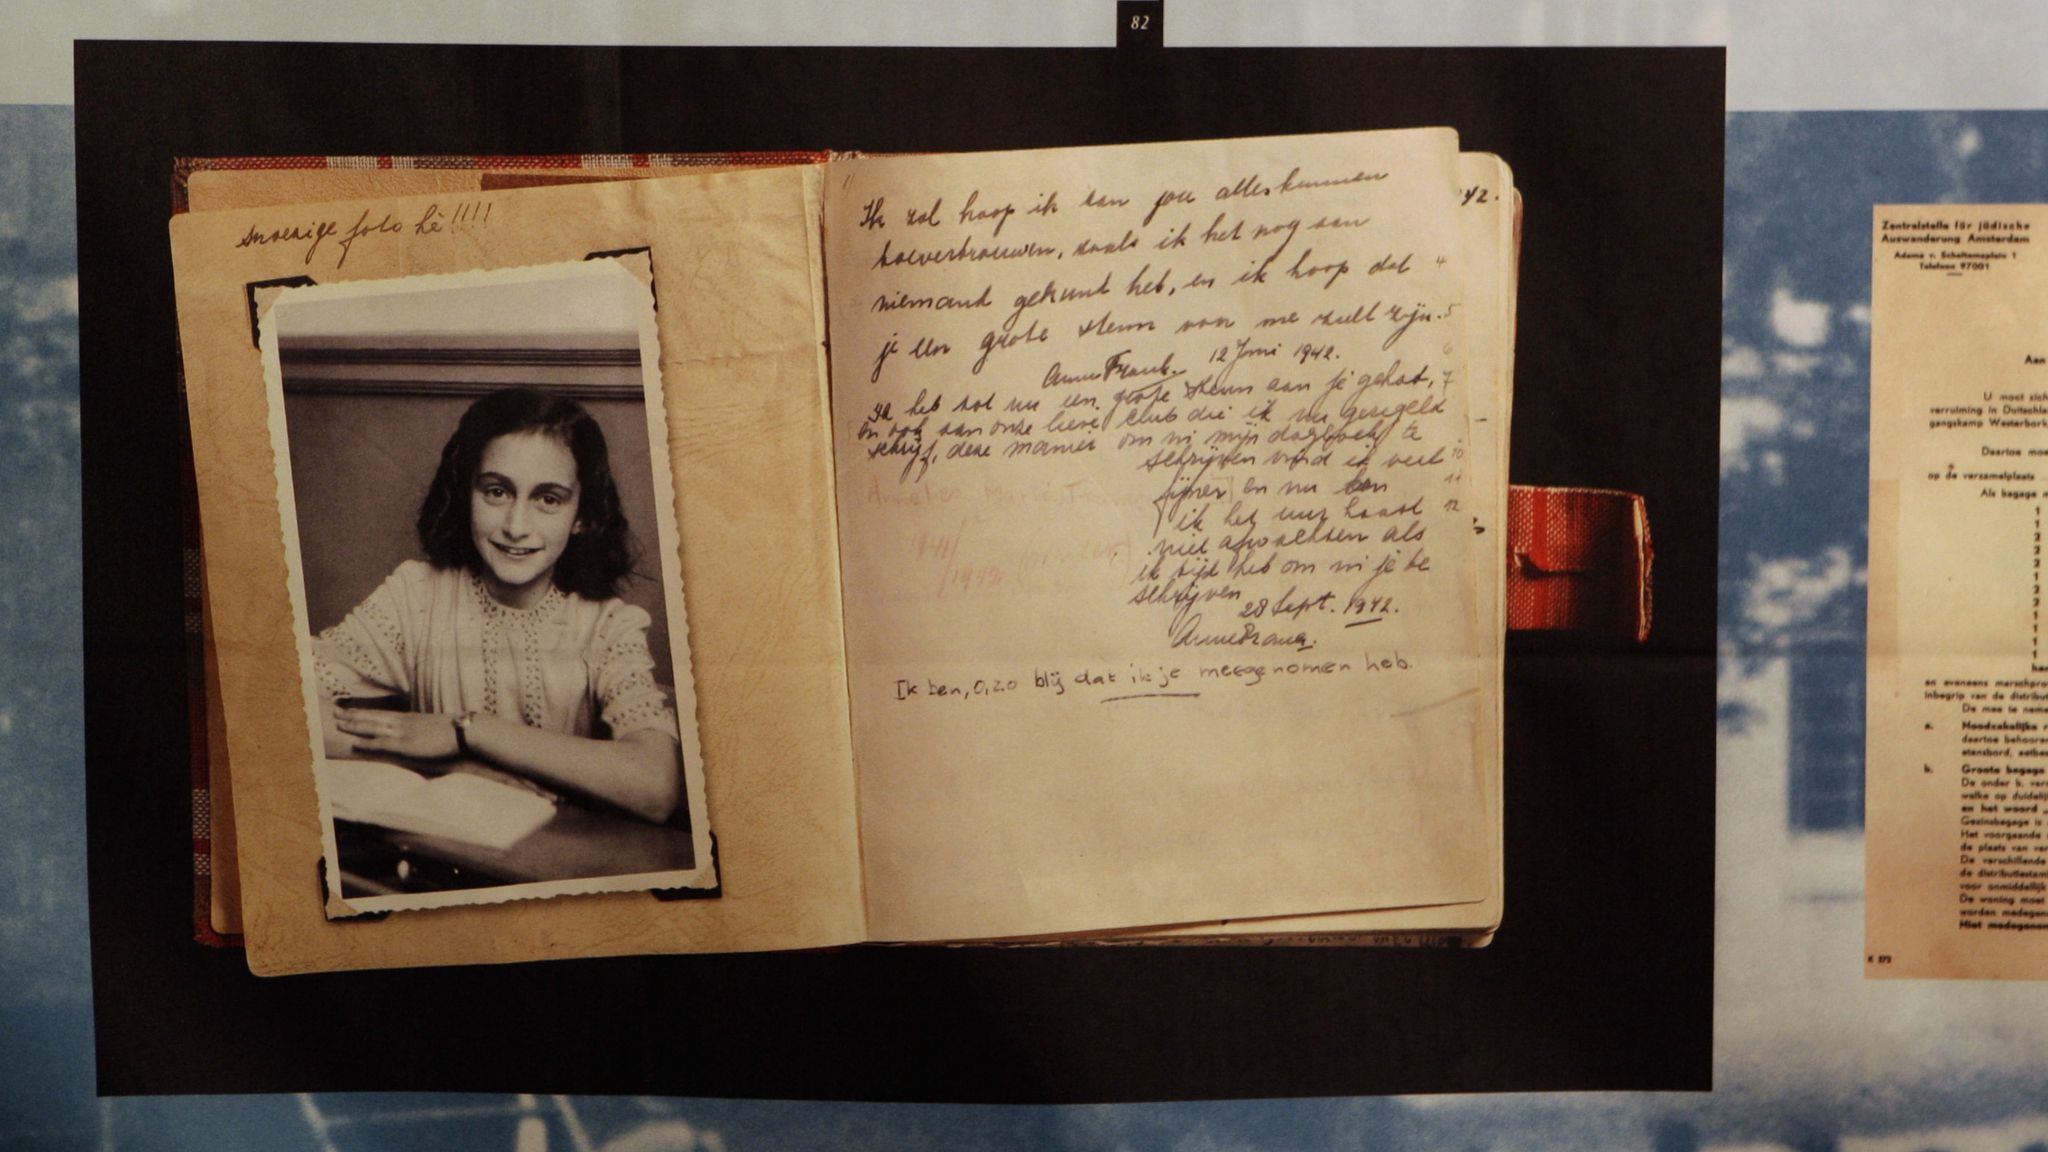 82
snoezige foto hè!!!!
Ik zal hoop ik aan jou alles kunnen
toevertrouwen, zoals ik het nog aan
niemand gekund heb, en ik hoop dat 4
je een grote steun voor me zult zijn. 5
Anne Frank. 12 Juni 1942.
6
Ik heb tot nu een grote steun aan je gehad, 7
en ook aan onze lieve club die ik nu geregeld
schrijf, deze manier om in mijn dagboek te
schrijven vind ik veel 10
fijner en nu kan 11
ik het uur haast 12
niet afwachten als
ik tijd heb om in je te
schrijven
28 Sept. 1942.
Anne Frank.
Ik ben, o, zo blij dat ik je meegenomen heb.
1941/
/1942
42.
Zentralstelle für jüdische
Auswanderung Amsterdam
Adama v. Scheltemaplein 1
Telefoon 97001
Aan
U moet zich
verruiming in Duitschla
gangskamp Westerbork,
Daartoe moe
op de verzamelplaats
Als bagage m
1
1
2
2
2
1
2
2
1
1
1
1
han
en eveneens marschpro
inbegrip van de distribut
De mee te neme
a. Noodzakelijke r
daartoe behoore
etensbord, eetbe
b. Groote bagage
De onder b. verm
welke op duidelij
en het woord
Gezinsbagage is
Het voorgaande
de plaats van ver
De verschillende
de distributiestam
voor onmiddellijk
De woning moet
worden medegen
Niet medegenom
K 372